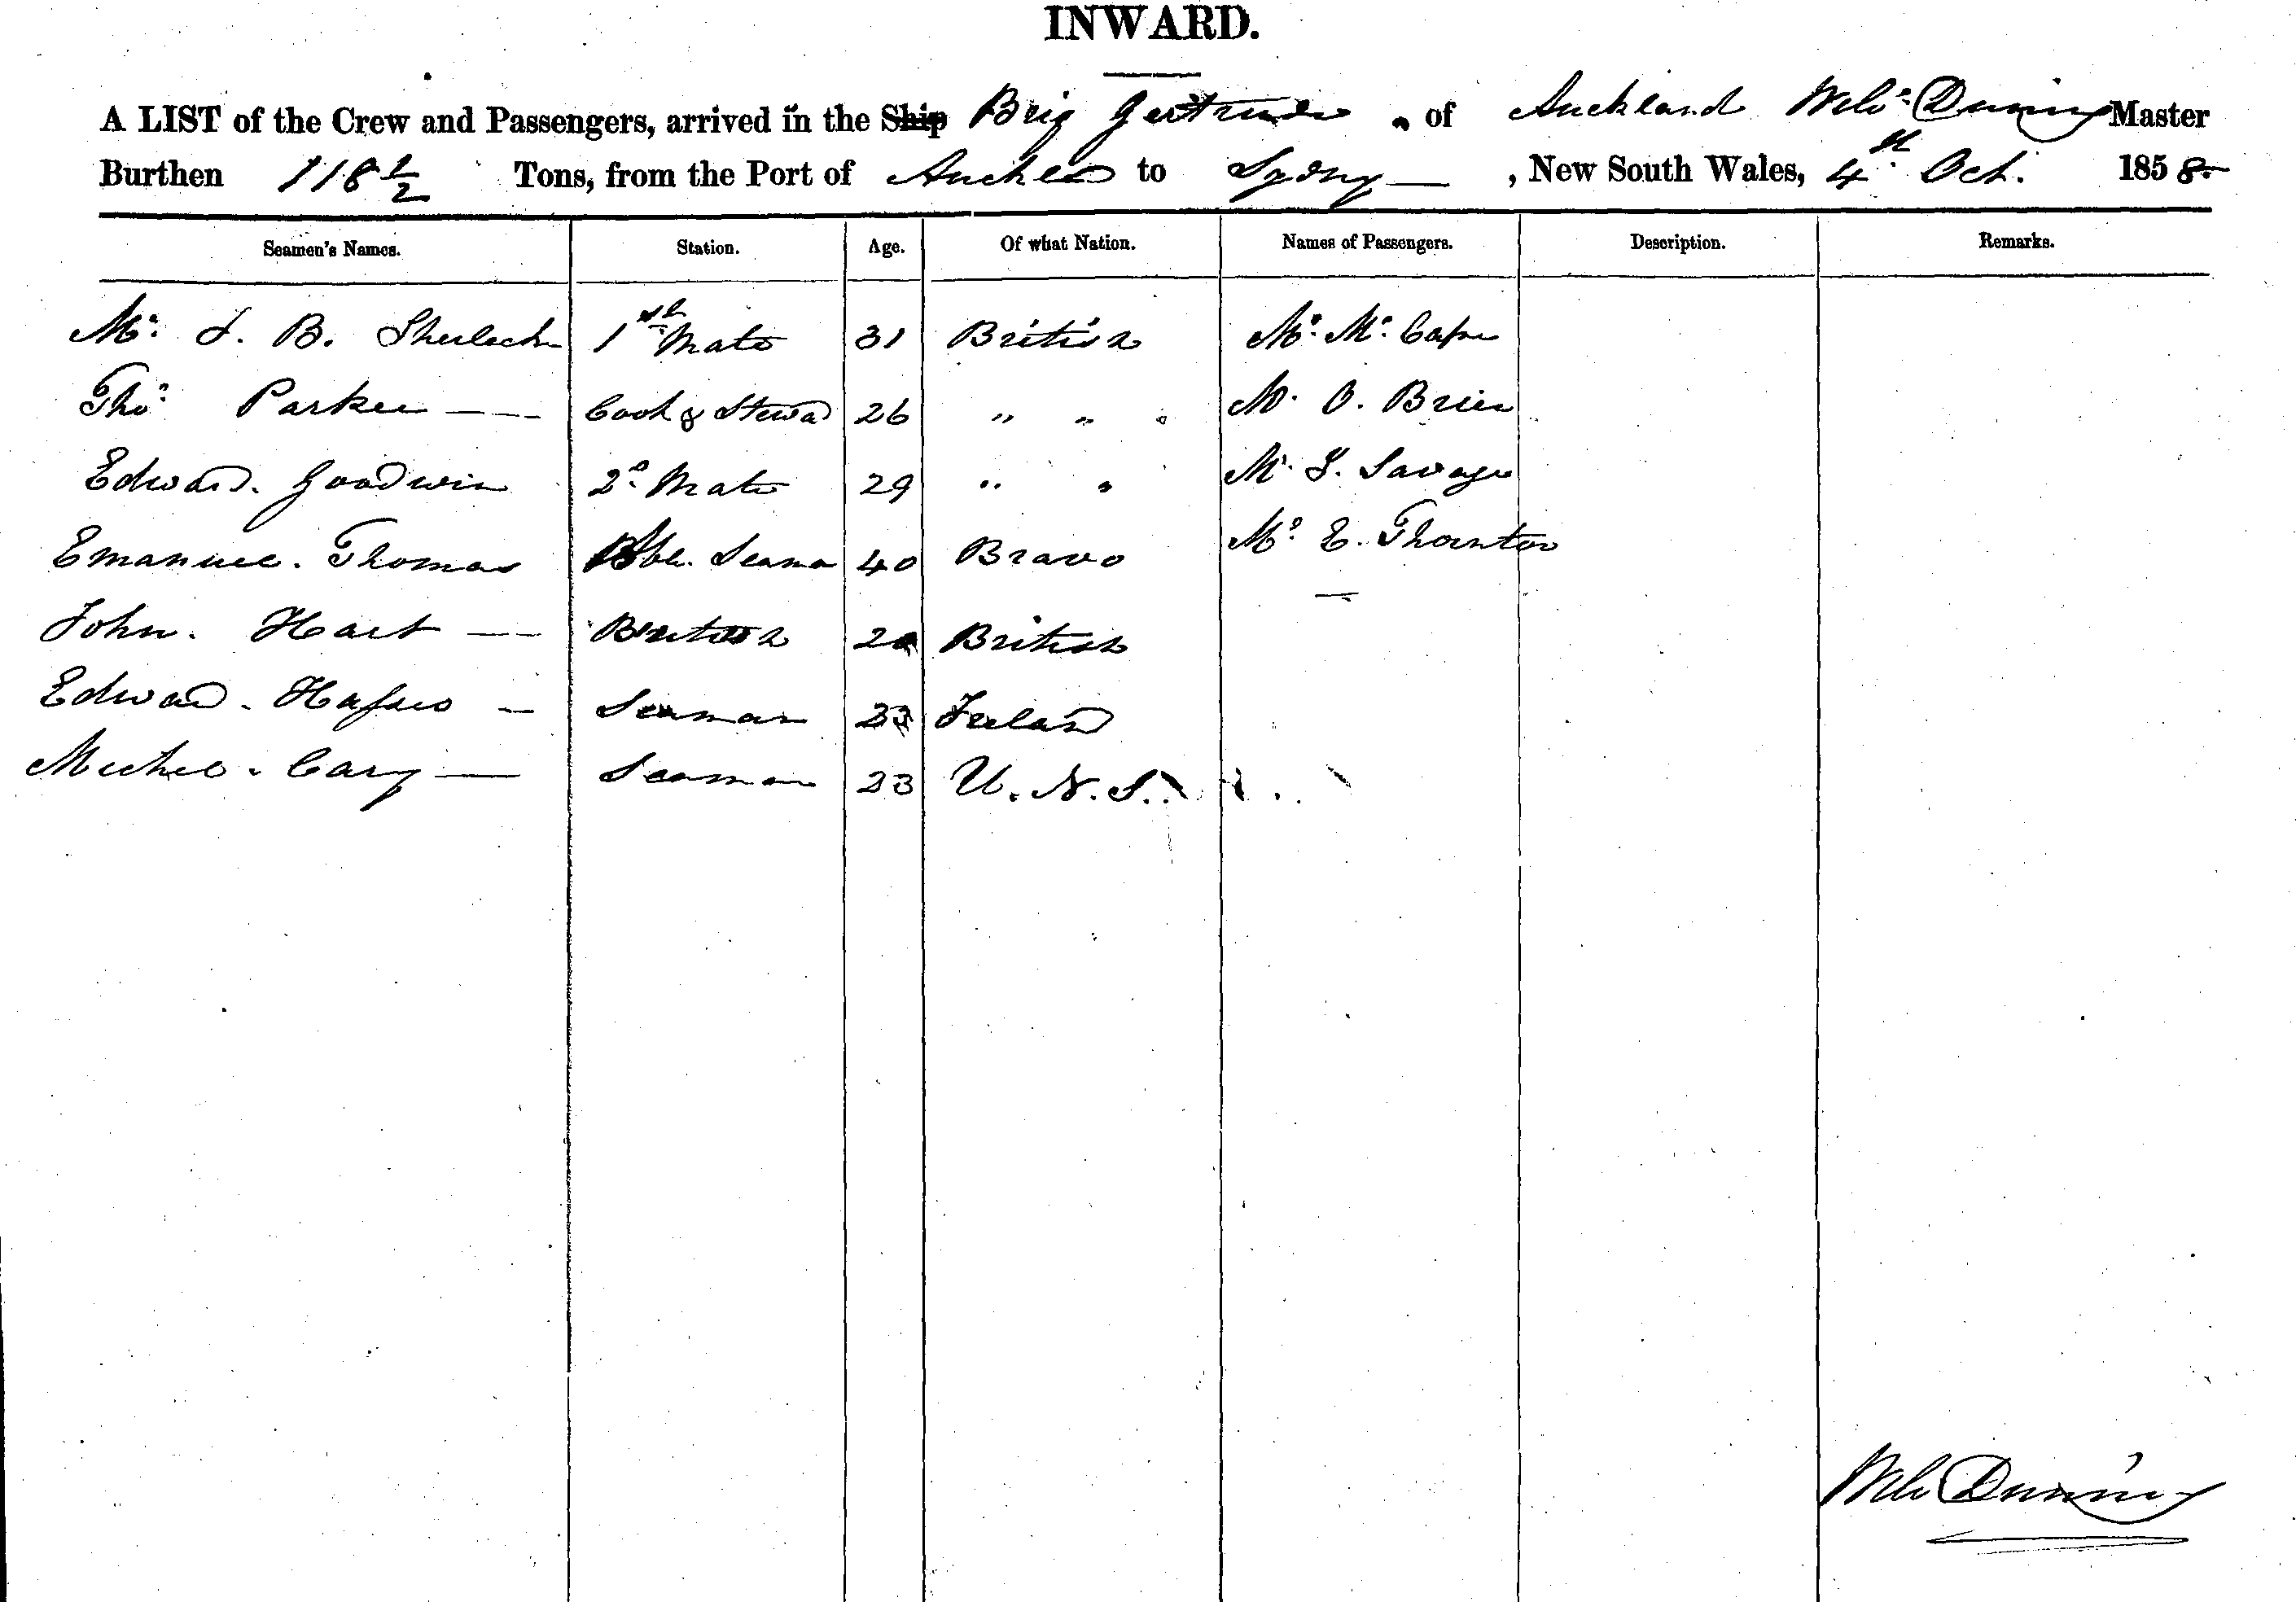 INWARD.
A LIST of the Crew and Passengers, arrived in the Ship Brig Gertrude of Auckland Master
Burthen 118 1/2 Tons, from the Port of Auckld to Sydney , New South Wales, 4th Oct. 1858
Seamen's Names. Station. Age. Of what Nation. Names of Passengers. Description. Remarks.
Mr. B. 1st Mate 31 British Mr. Mc.
Thos. Parker Cook & Steward 26 " " Mr. O. Brien
Edward Goodwin 2d Mate 29 " " Mr. Savage
Emanuel Thomas Able Seaman 40 Bravo Mr. E. Thornton
John Hart British British
Edward Seaman 23 Ireland
Seaman 23 U.